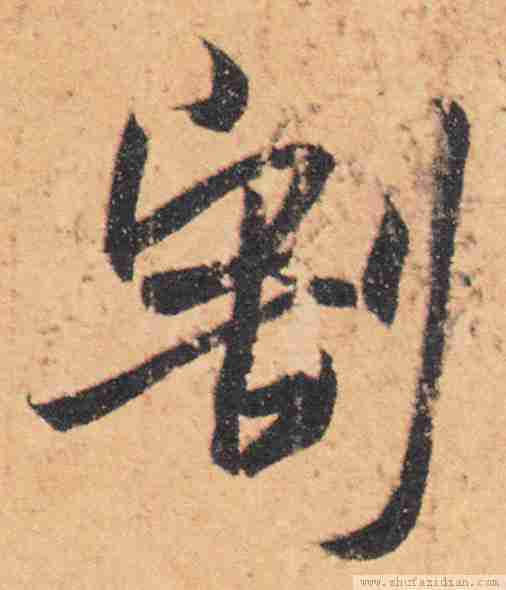 割
www.shufazidian.com